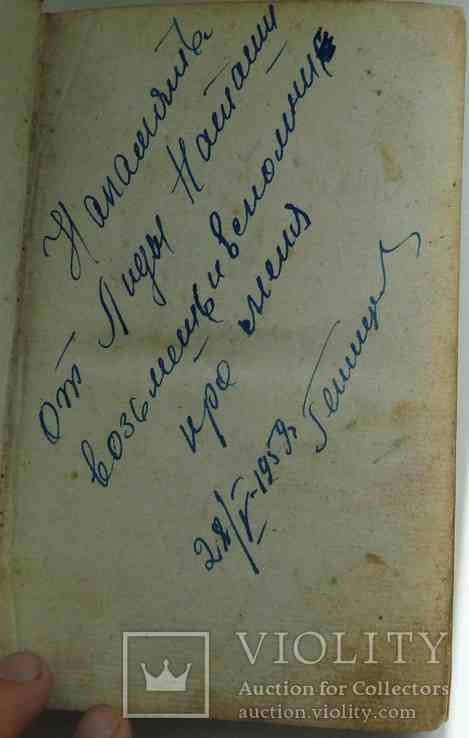 Напамять
от Лиды Наташи
возьмешь и вспомнишь
про меня
28/V-1959г
VIOLITY
Auction for Collectors
auction.violity.com